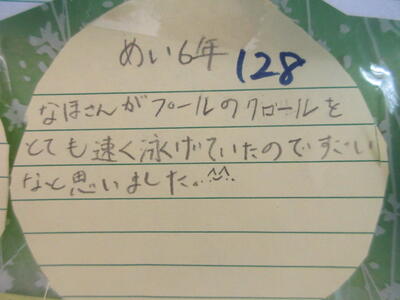 めい6年 128
なほさんがプールのクロールを
とても速く泳げていたのですごい
なと思いました。^^